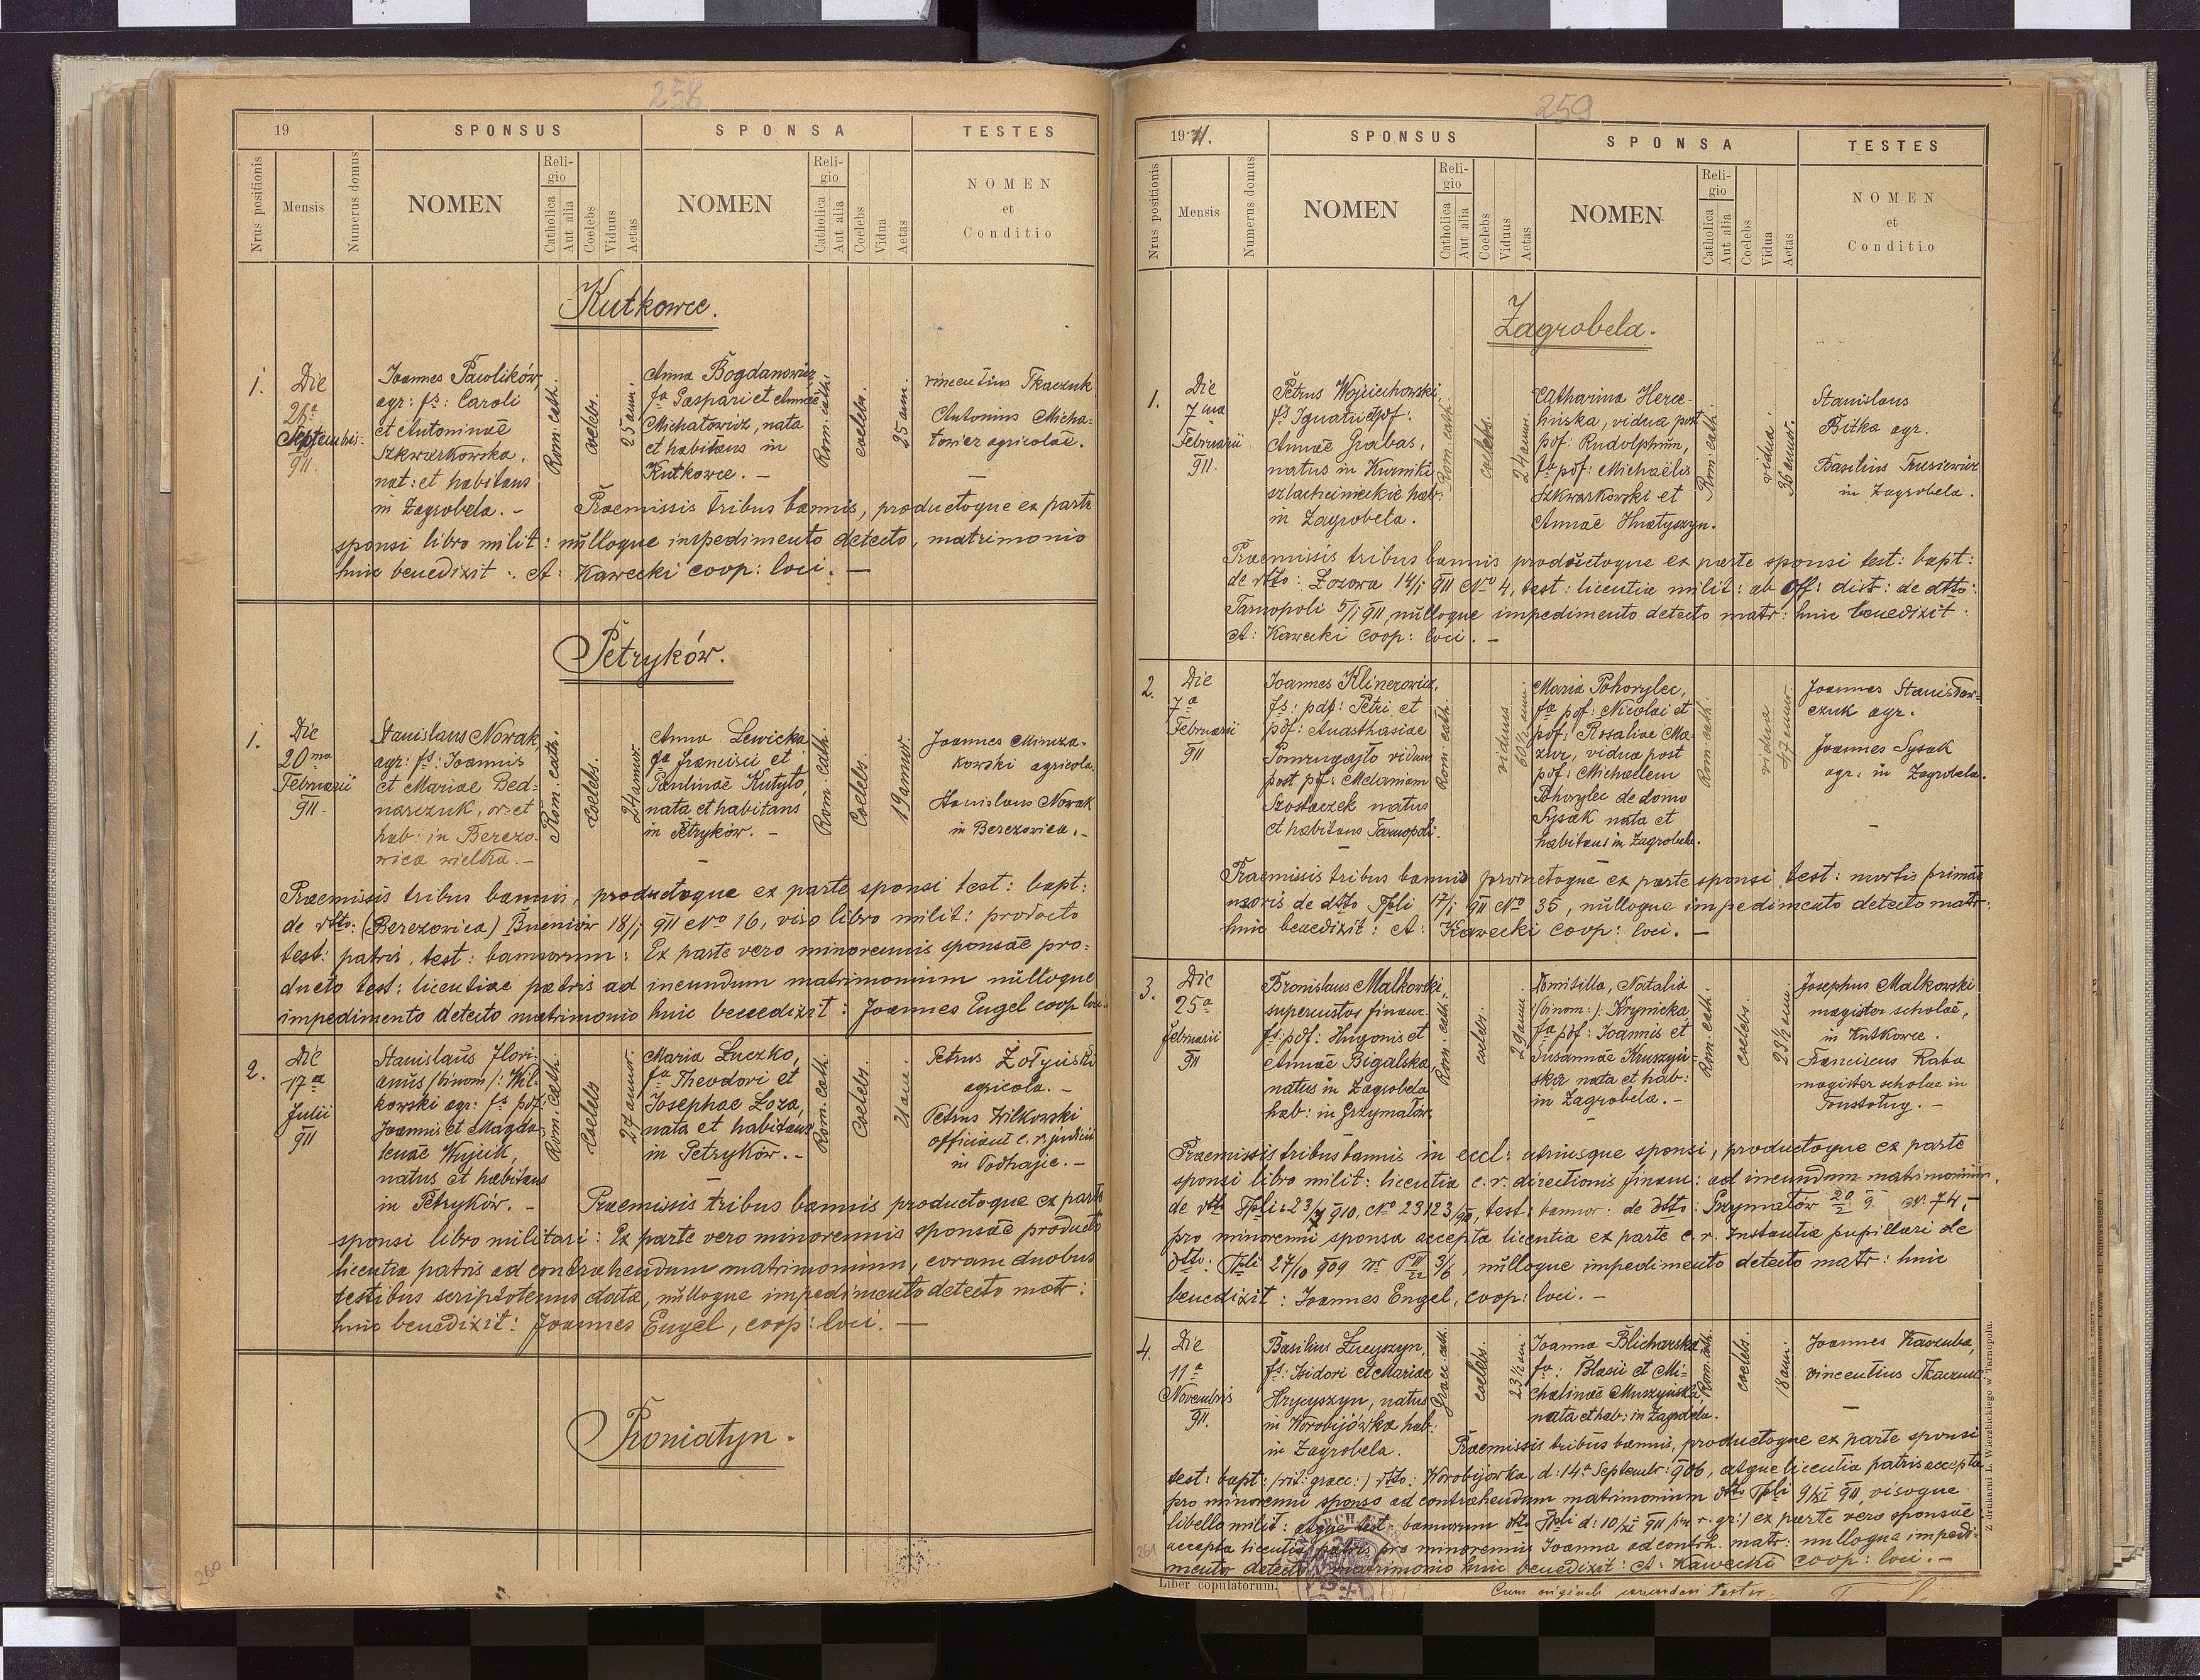 258
19
SPONSUS
SPONSA
TESTES
Nrus positionis
Mensis
Numerus domus
NOMEN
Religio
Catholica
Aut alia
Coelebs
Viduus
Aetas
NOMEN
Religio
Catholica
Aut alia
Coelebs
Vidua
Aetas
NOMEN
et
Conditio
Kutkowce.
1.
Die
26ª
Septembris
911.
Joannes Pawlików,
agr: fs: Caroli
et Antoninae
Szkwarkowska.
nat: et habitans
in Zagrobela. -
Rom: cath.
coelebs.
25 ann.
Anna Bogdanowicz
fa Gaspari et Annae
Michałowicz, nata
et habitans in
Kutkowce. -
Rom: cath.
coelebs.
25 ann.
Vincentius Tkaczuk
Antonius Micha-
łowicz agricolae.
Praemissis tribus bannis, productoque ex parte
sponsi libro milit: nulloque impedimento detecto, matrimonio
huic benedixit: A: Kawecki coop: loci. -
Petryków.
1.
Die
20ma
Februarii
911.
Stanislaus Nowak,
agr: fs: Joannis
et Mariae Bed-
narczuk, or: et
hab: in Berezo-
wica wielka. -
Rom: cath.
coelebs.
24 annor.
Anna Lewicka
fa Francisci et
Paulinae Kutyło,
nata et habitans
in Petryków. -
Rom: cath.
Coelebs.
19 annor.
Joannes
kowski agricola
Stanislaus Nowak
in Berezowica. -
Praemissis tribus bannis, productoque ex parte sponsi test: bapt:
de dtto: (Berezowica) Bueniów 18/1 911 No 16, viso libro milit: producto
test: patris, test: bannorum: Ex parte vero minorennis sponsae pro-
ducto test: licentiae patris ad ineundum matrimonium nulloque
impedimento detecto matrimonio huic benedixit: Joannes Engel coop loci.
2.
Die
17a
Julii
911
Stanislaus Flori-
anus /binom/: Wil-
kowski agr: fs pdf:
Joannis et Magda-
lenae Wujcik,
natus et habitans
in Petryków. -
Rom: cath:
Coelebs
27 annor.
Maria Łuczko,
fa Theodori et
Josephae Łoza,
nata et habitans
in Petryków. -
Rom: cath
Coelebs.
21 ann.
Petrus Żołyński
agricola. -
Petrus Wilkowski
officiant c. r. judicii
in Podhajce. -
Praemissis tribus bannis productoque ex parte
sponsi libro militari: Ex parte vero minorennis sponsae producto
licentia patris ad contrahendum matrimonium, coram duobus
testibus scriptotenus data, nulloque impedimento detecto matr:
huic benedixit: Joannes Engel, coop: loci. -
Proniatyn.
260
259
1911.
SPONSUS
SPONSA
TESTES
Nrus positionis
Mensis
Numerus domus
NOMEN
Religio
Catholica
Aut alia
Coelebs
Viduus
Aetas
NOMEN
Religio
Catholica
Aut alia
Coelebs
Vidua
Aetas
NOMEN
et
Conditio
Zagrobela.
1.
Die
7ma
Februarii
911.
Petrus Wojciechowski
fs Ignatii et pdf:
Annae Grabas,
natus in Kurniki
szlachcinieckie hab:
in Zagrobela.
Rom: cath.
coelebs.
24 annor.
Catharina Herce-
lińska, vidua post
pdf: Rudolphum,
fa pdf: Michaëlis
Szkwarkowski et
Annae Hnatyszyn.
Rom: cath.
vidua.
36 annor.
Stanislaus
Bitka agr.
Basilius Trusiewicz
in Zagrobela.
Praemissis tribus bannis productoque ex parte sponsi test: bapt:
de dtto: Łozowa 14/1 911 No 4, test: licentia milit: ab Off: dist: de dtto:
Tarnopoli 5/1 911, nulloque impedimento detecto matr: huic benedixit:
A: Kawecki coop: loci. -
2.
Die
7a
Februarii
911
Joannes Klinerowicz,
fs: pdf: Petri et
pdf: Anasthasiae
viduus
post pdf: Melaniam
Szostaczek natus
et habitans Tarnopoli.
Rom: cath.
viduus
60½ ann.
Maria Pohorylec,
fa pdf: Nicolai et
pdf: Rosaliae Ma-
zur, vidua post
pdf: Michaëlem
Pohorylec de domo
Sysak nata et
habitans in Zagrobela.
Rom: cath.
vidua
47 annor.
Joannes Stanisław-
czuk agr.
Joannes Sysak
agr: in Zagrobela.
Praemissis tribus bannis productoque ex parte sponsi test: mortis primae
uxoris de dtto Tpli 17/1 911 No 35, nulloque impedimento detecto matr:
huic benedixit: A: Kawecki coop: loci. -
3.
Die
25a
Februarii
911
Bronislaus Malkowski,
supercustos finanr.
fs: pdf: Hugonis et
Annae Bigalska
natus in Zagrobela
hab: in Grzymałów.
Rom: cath.
coelebs.
29 annor.
Domisilla, Natalia
/binom:/ Krynicka
fa pdf: Joannis et
Susannae Kruszyń-
ska nata et hab:
in Zagrobela. -
Rom: cath.
coelebs.
23½ ann.
Josephus Malkowski
magister scholae,
in Kutkowce.
Franciscus Raba
magister scholae in
Toustoług. -
Praemissis tribus bannis in eccl: utriusque sponsi, productoque ex parte
sponsi libro milit: licentia c. r. directionis finanr: ad ineundum matrimonium,
de dtto Tpli 23/7 910, No 23123/910, test: bannor: de dtto: Grzymałów 20/2 9 N. 74,
pro minorenni sponsa accepta licentia ex parte c. r. Instantia pupillari de
dtto: Tpli 27/10 909 nr P III/22 3/6, nulloque impedimento detecto matr: huic
benedixit: Joannes Engel, coop: loci. -
4.
Die
11a
Novembris
911.
Basilius Łucyszyn,
fs: Isidori et Mariae
Hrycyszyn, natus
in Worobijówka hab:
in Zagrobela.
Graec: cath.
coelebs.
23½ ann
Joanna Blicharska
fa: Blasii et Mi-
chalinae Muszyńska,
nata et hab: in Zagrobela.
Rom: cath.
coelebs.
18 ann:
Joannes Kaszuba,
Vincentius Tkaczuk
Praemissis tribus bannis, productoque ex parte sponsi
test: bapt: /rit: graec:/ dtto: Worobijówka, d: 14a Septembr: 906, atque licentia patris accepta
pro minorenni sponso ad contrahendum matrimonium dtto Tpli 9/XI 911, visoque
libello milit: atque test. bannorum dtto Tpli d: 10/XI 911 r. gr:) ex parte vero sponsae
accepta licentia patris pro minorennis Joanna ad contrh. matr: nulloque impedi-
mento detecto matrimonio huic benedixit: A: Kawecki coop: loci. -
261
Liber copulatorum.
Cum originali concordare testor
Z drukarni L. Wierzbickiego w Tarnopolu.